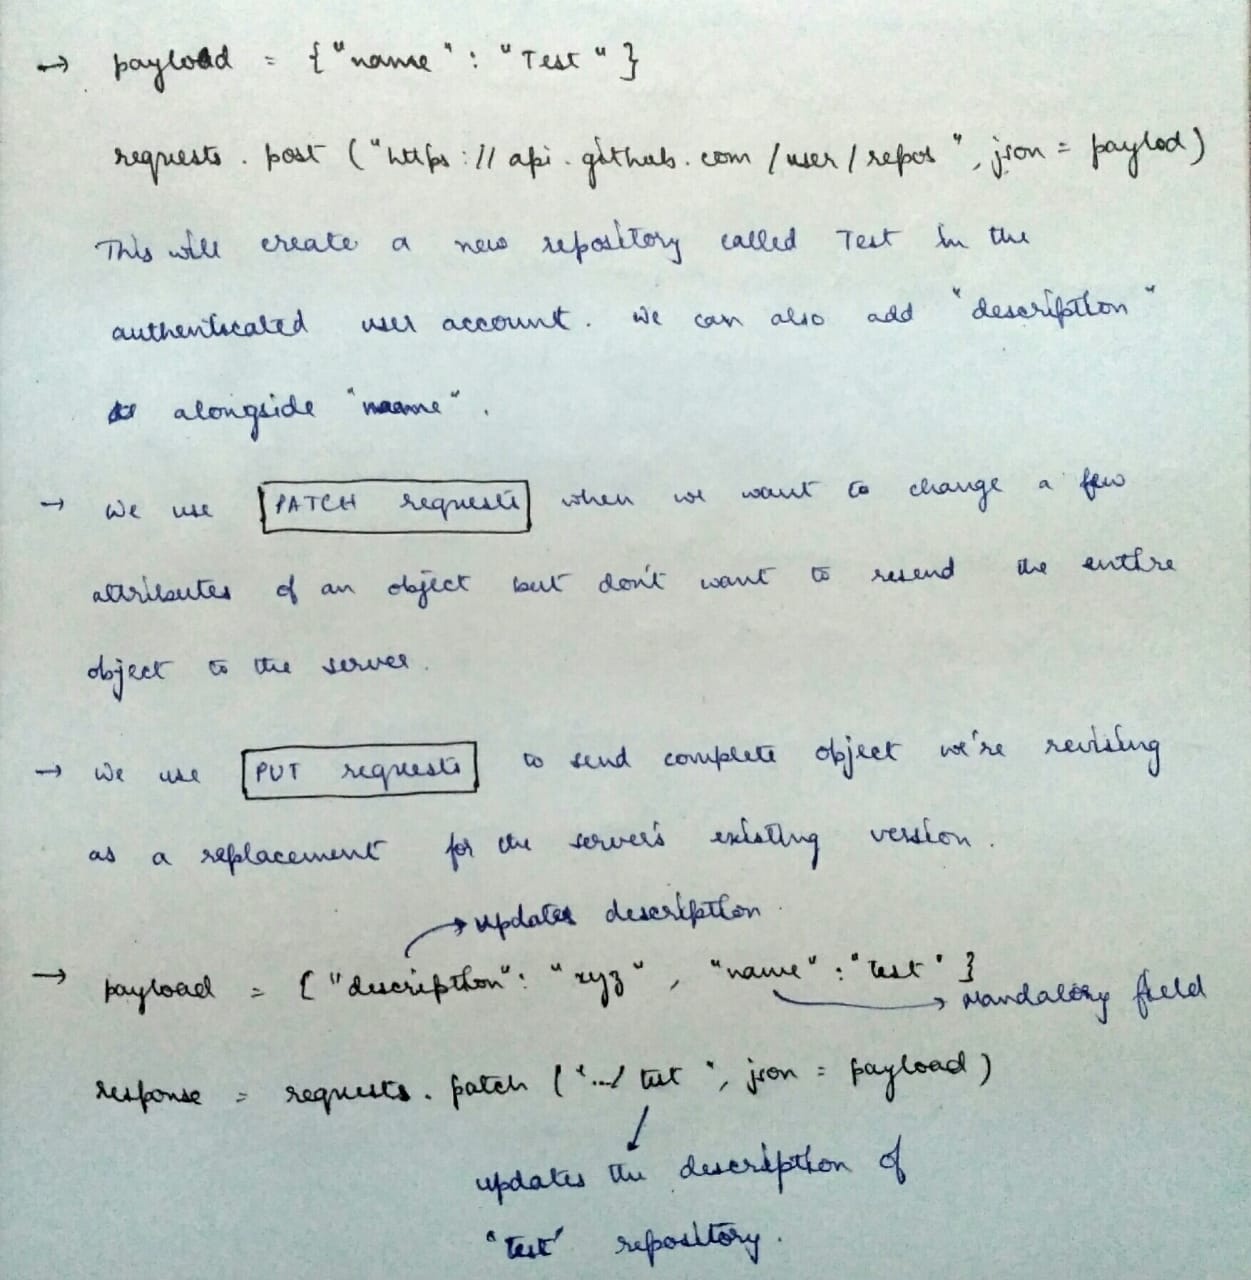 → payload = {"name" : "Test"}
requests.post ("https://api.github.com/user/repos", json = paylod)
This will create a new repository called Test in the
authenticated user account. We can also add "description"
alongside "name".
→ We use PATCH requests when we want to change a few
attributes of an object but don't want to resend the entire
object to the server.
→ We use PUT requests to send complete object we're revising
as a replacement for the server's existing version.
→ updates description.
→ payload = { "description": "xyz", "name": "test" }
→ Mandatory field
response = requests.patch (".../test", json = payload)
updates the description of
"test" repository.